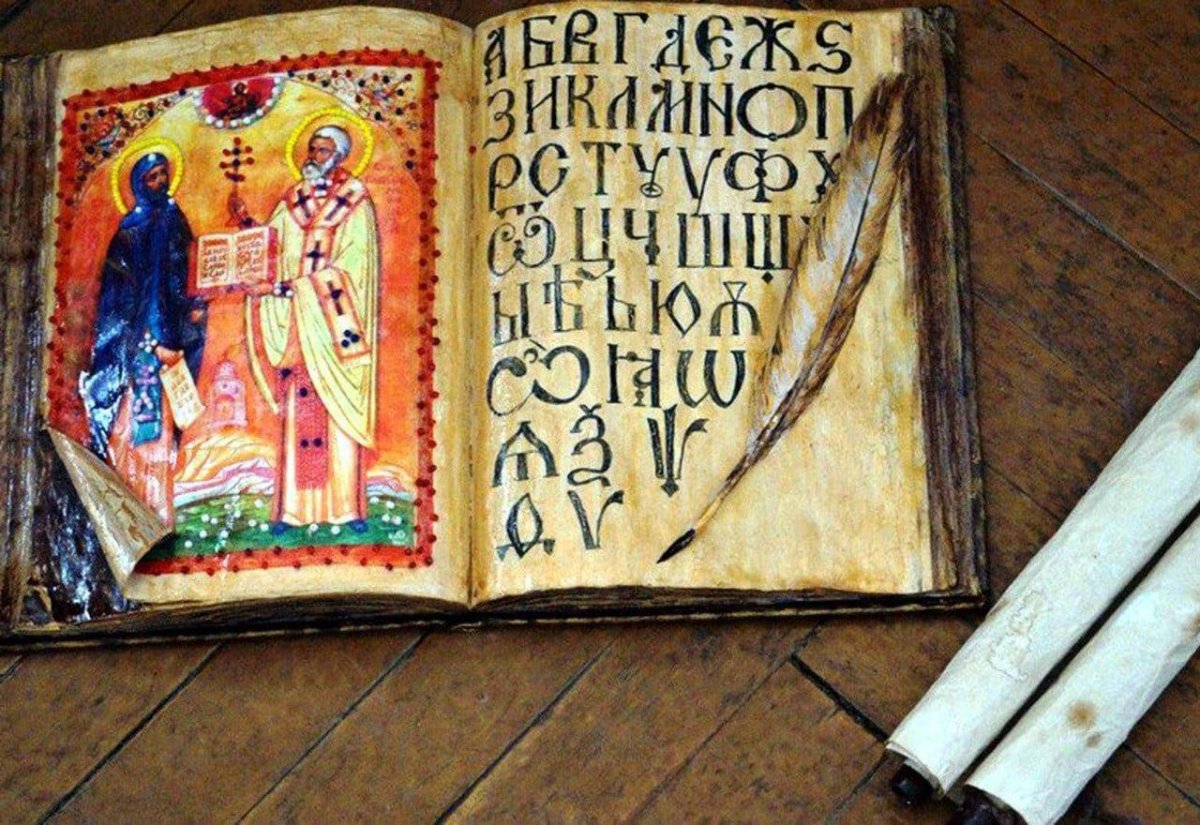 А Б В Г Д Є Ж Ѕ
З И К Л М Н О П
Р С Т У У Ф Х
Ѿ Ц Ч Ш Щ
Ы Ѣ Ь Ю Ѫ
Ѽ Ꙗ Ѡ
Ѧ Ѯ Ѱ
Ѳ Ѵ